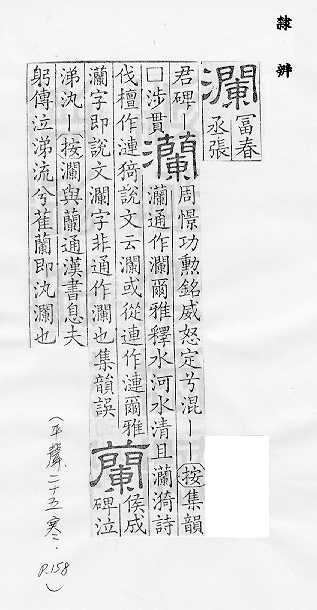 隸辨
瀾 冨春
丞張
君碑｜
囗涉貫
灡 周憬功勲銘威怒定兮混｜｜按集韻
灡通作瀾爾雅釋水河水清且灡猗詩
伐檀作漣猗說文云瀾或從連作漣爾雅
灡字即說文瀾字非通作瀾也集韻誤
蘭 侯成
碑泣
涕汍｜按瀾與蘭通漢書息夫
躬傳泣涕流兮萑蘭即汍瀾也
(平聲二十五寒. P.158)